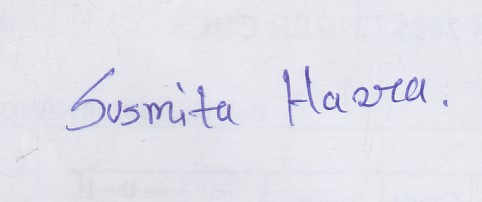 Susmita Hazra.